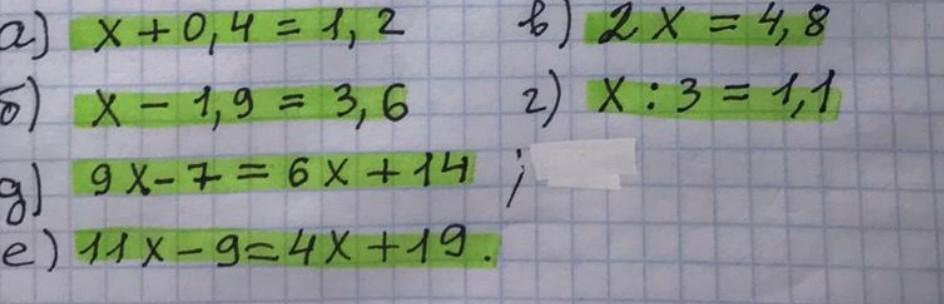 а) x + 0,4 = 1,2 в) 2x = 4,8
б) x - 1,9 = 3,6 г) x : 3 = 1,1
д) 9x - 7 = 6x + 14 ;
е) 11x - 9 = 4x + 19.